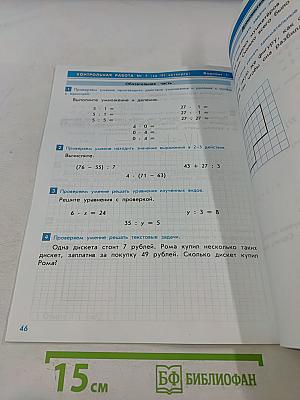 КОНТРОЛЬНАЯ РАБОТА № 3 (за III четверть) Вариант 1
Обязательная часть
1 Проверяем умение производить действия умножения и деления с нулём и единицей.
Выполните умножение и деление.
5 · 1 = 27 · 1 =
5 : 1 = 27 : 1 =
5 : 5 = 27 : 27 =
4 · 0 =
0 · 4 =
0 : 4 =
2 Проверяем умение находить значение выражения в 2–3 действия.
Вычислите.
(76 − 55) : 7 43 + 27 : 3
4 · (71 − 63)
3 Проверяем умение решать уравнения изученных видов.
Решите уравнения с проверкой.
6 · z = 24 y : 3 = 8
35 : y = 5
4 Проверяем умение решать текстовые задачи.
Одна дискета стоит 7 рублей. Рома купил несколько таких
дискет, заплатив за покупку 49 рублей. Сколько дискет купил
Рома?
46
15 см
БФ БИБЛИОФАН